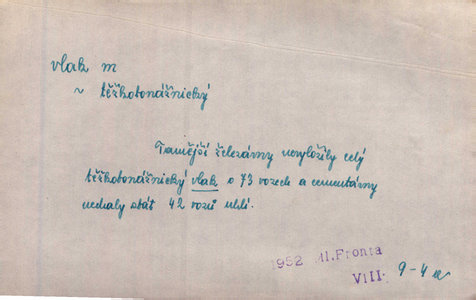 vlak m
~ těžkotonážnický
Tamější železárny nevyložily celý
těžkotonážnický vlak o 73 vozech a cementárny
nechaly stát 42 vozů uhlí.
1952 Ml. Fronta
VIII. 9-4